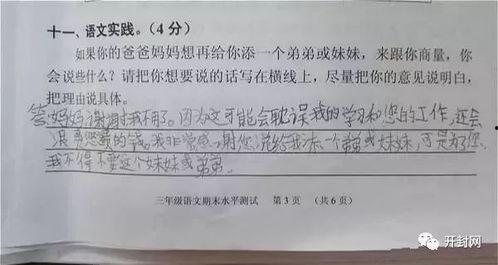 十一、语文实践。（4 分）
如果你的爸爸妈妈想再给你添一个弟弟或妹妹，来跟你商量，你
会说些什么？请把你想要说的话写在横线上，尽量把你的意见说明白，
把理由说具体。
答妈妈谢谢我不用了。因为这可能会耽误我的学习和您的工作，还会
浪费您的钱。我非常感谢您说给我添一个弟弟或妹妹，可是为了您，
我不得不要这个妹妹或弟弟。
三年级语文期末水平测试 第 3 页 （共 6 页）
开封网